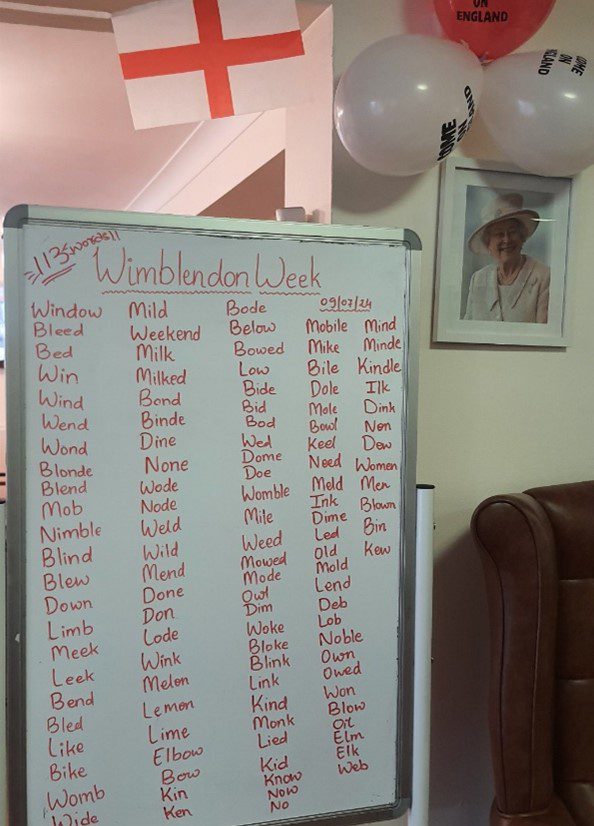 ON
ENGLAND
OME
ON
113 words!!
Wimblendon Week
09/07/24
Window
Bleed
Bed
Win
Wind
Wend
Wond
Blonde
Blend
Mob
Nimble
Blind
Blew
Down
Limb
Meek
Leek
Bend
Bled
Like
Bike
Womb
Wide
Mild
Weekend
Milk
Milked
Bond
Binde
Dine
None
Wode
Node
Weld
Wild
Mend
Done
Don
Lode
Wink
Melon
Lemon
Lime
Elbow
Bow
Kin
Ken
Bode
Below
Bowed
Low
Bide
Bid
Bod
Wed
Dome
Doe
Womble
Mile
Weed
Mowed
Mode
Owl
Dim
Woke
Bloke
Blink
Link
Kind
Monk
Lied
Kid
Know
Now
No
Mobile
Mike
Bile
Dole
Mole
Bowl
Keel
Need
Meld
Ink
Dime
Led
Old
Mold
Lend
Deb
Lob
Noble
Own
Owed
Won
Blow
Oil
Elm
Elk
Web
Mind
Minde
Kindle
Ilk
Dink
Non
Dew
Women
Men
Blown
Bin
Kew